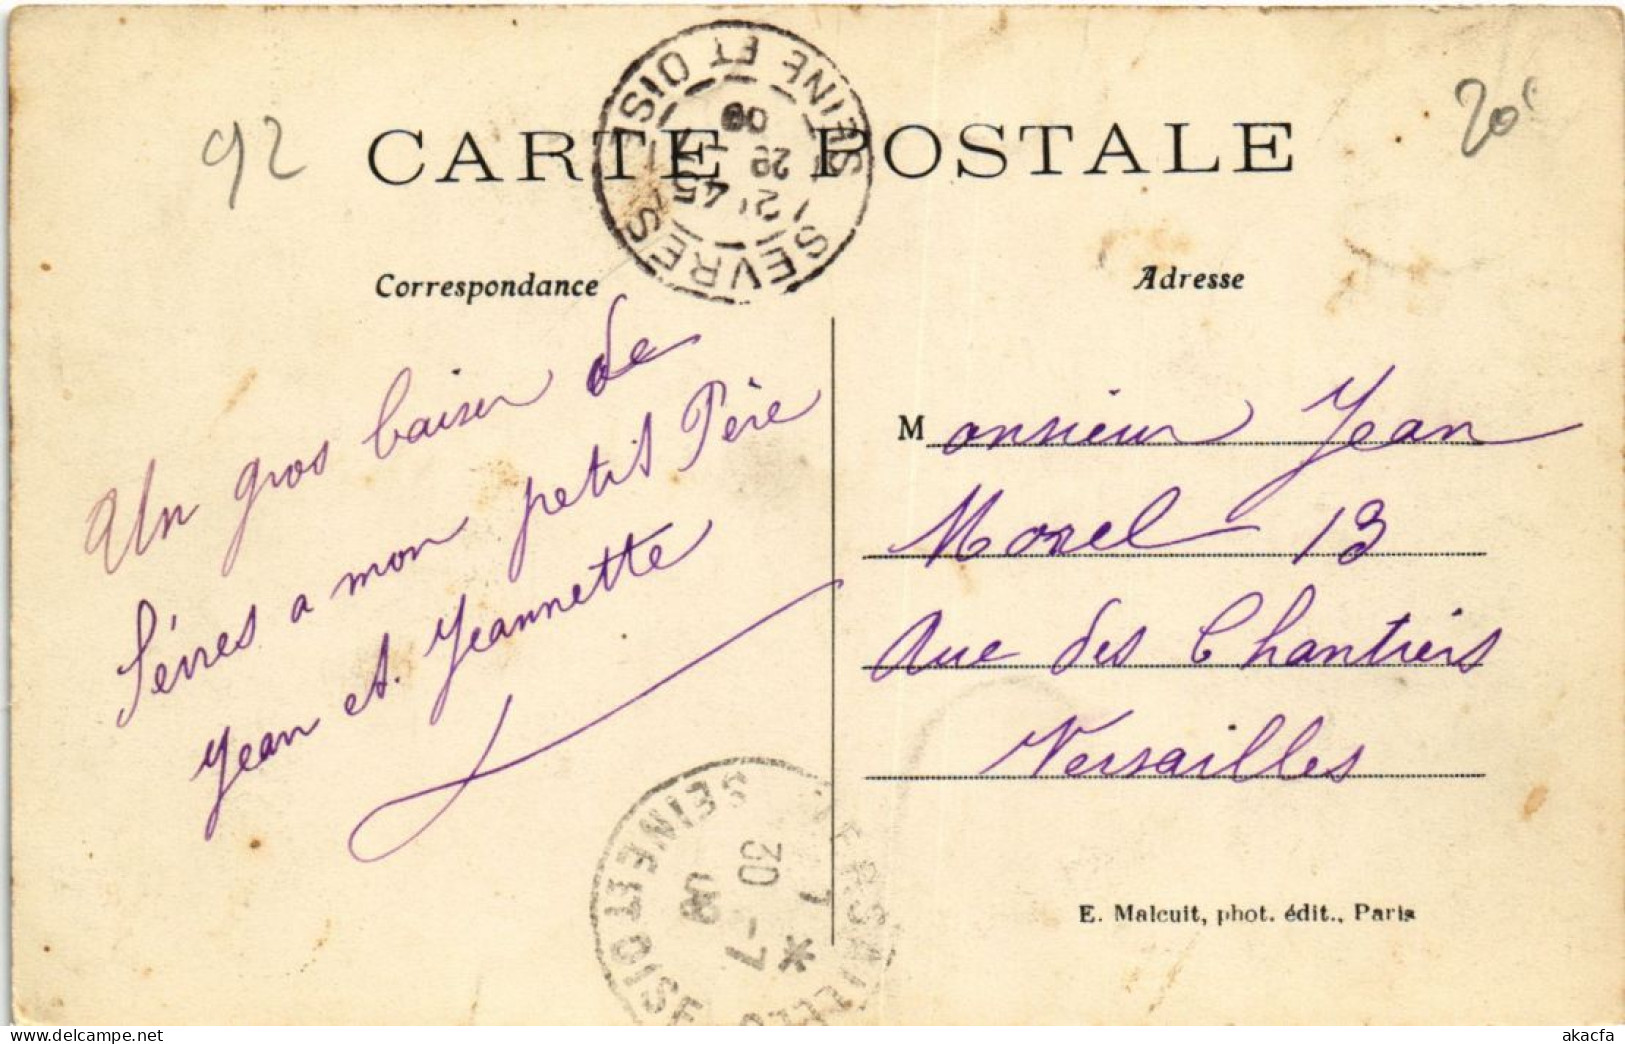 92
CARTE POSTALE
20
SEVRES
SEINE ET OISE
Correspondance
Adresse
Un gros baiser de
Sèvres a mon petit Père
Jean et. Jeannette
Monsieur Jean
Morel 13
Rue des Chantiers
Versailles
VERSAILLES
SEINE ET OISE
7 30
-7
08
E. Malcuit, phot. édit., Paris
akacfa